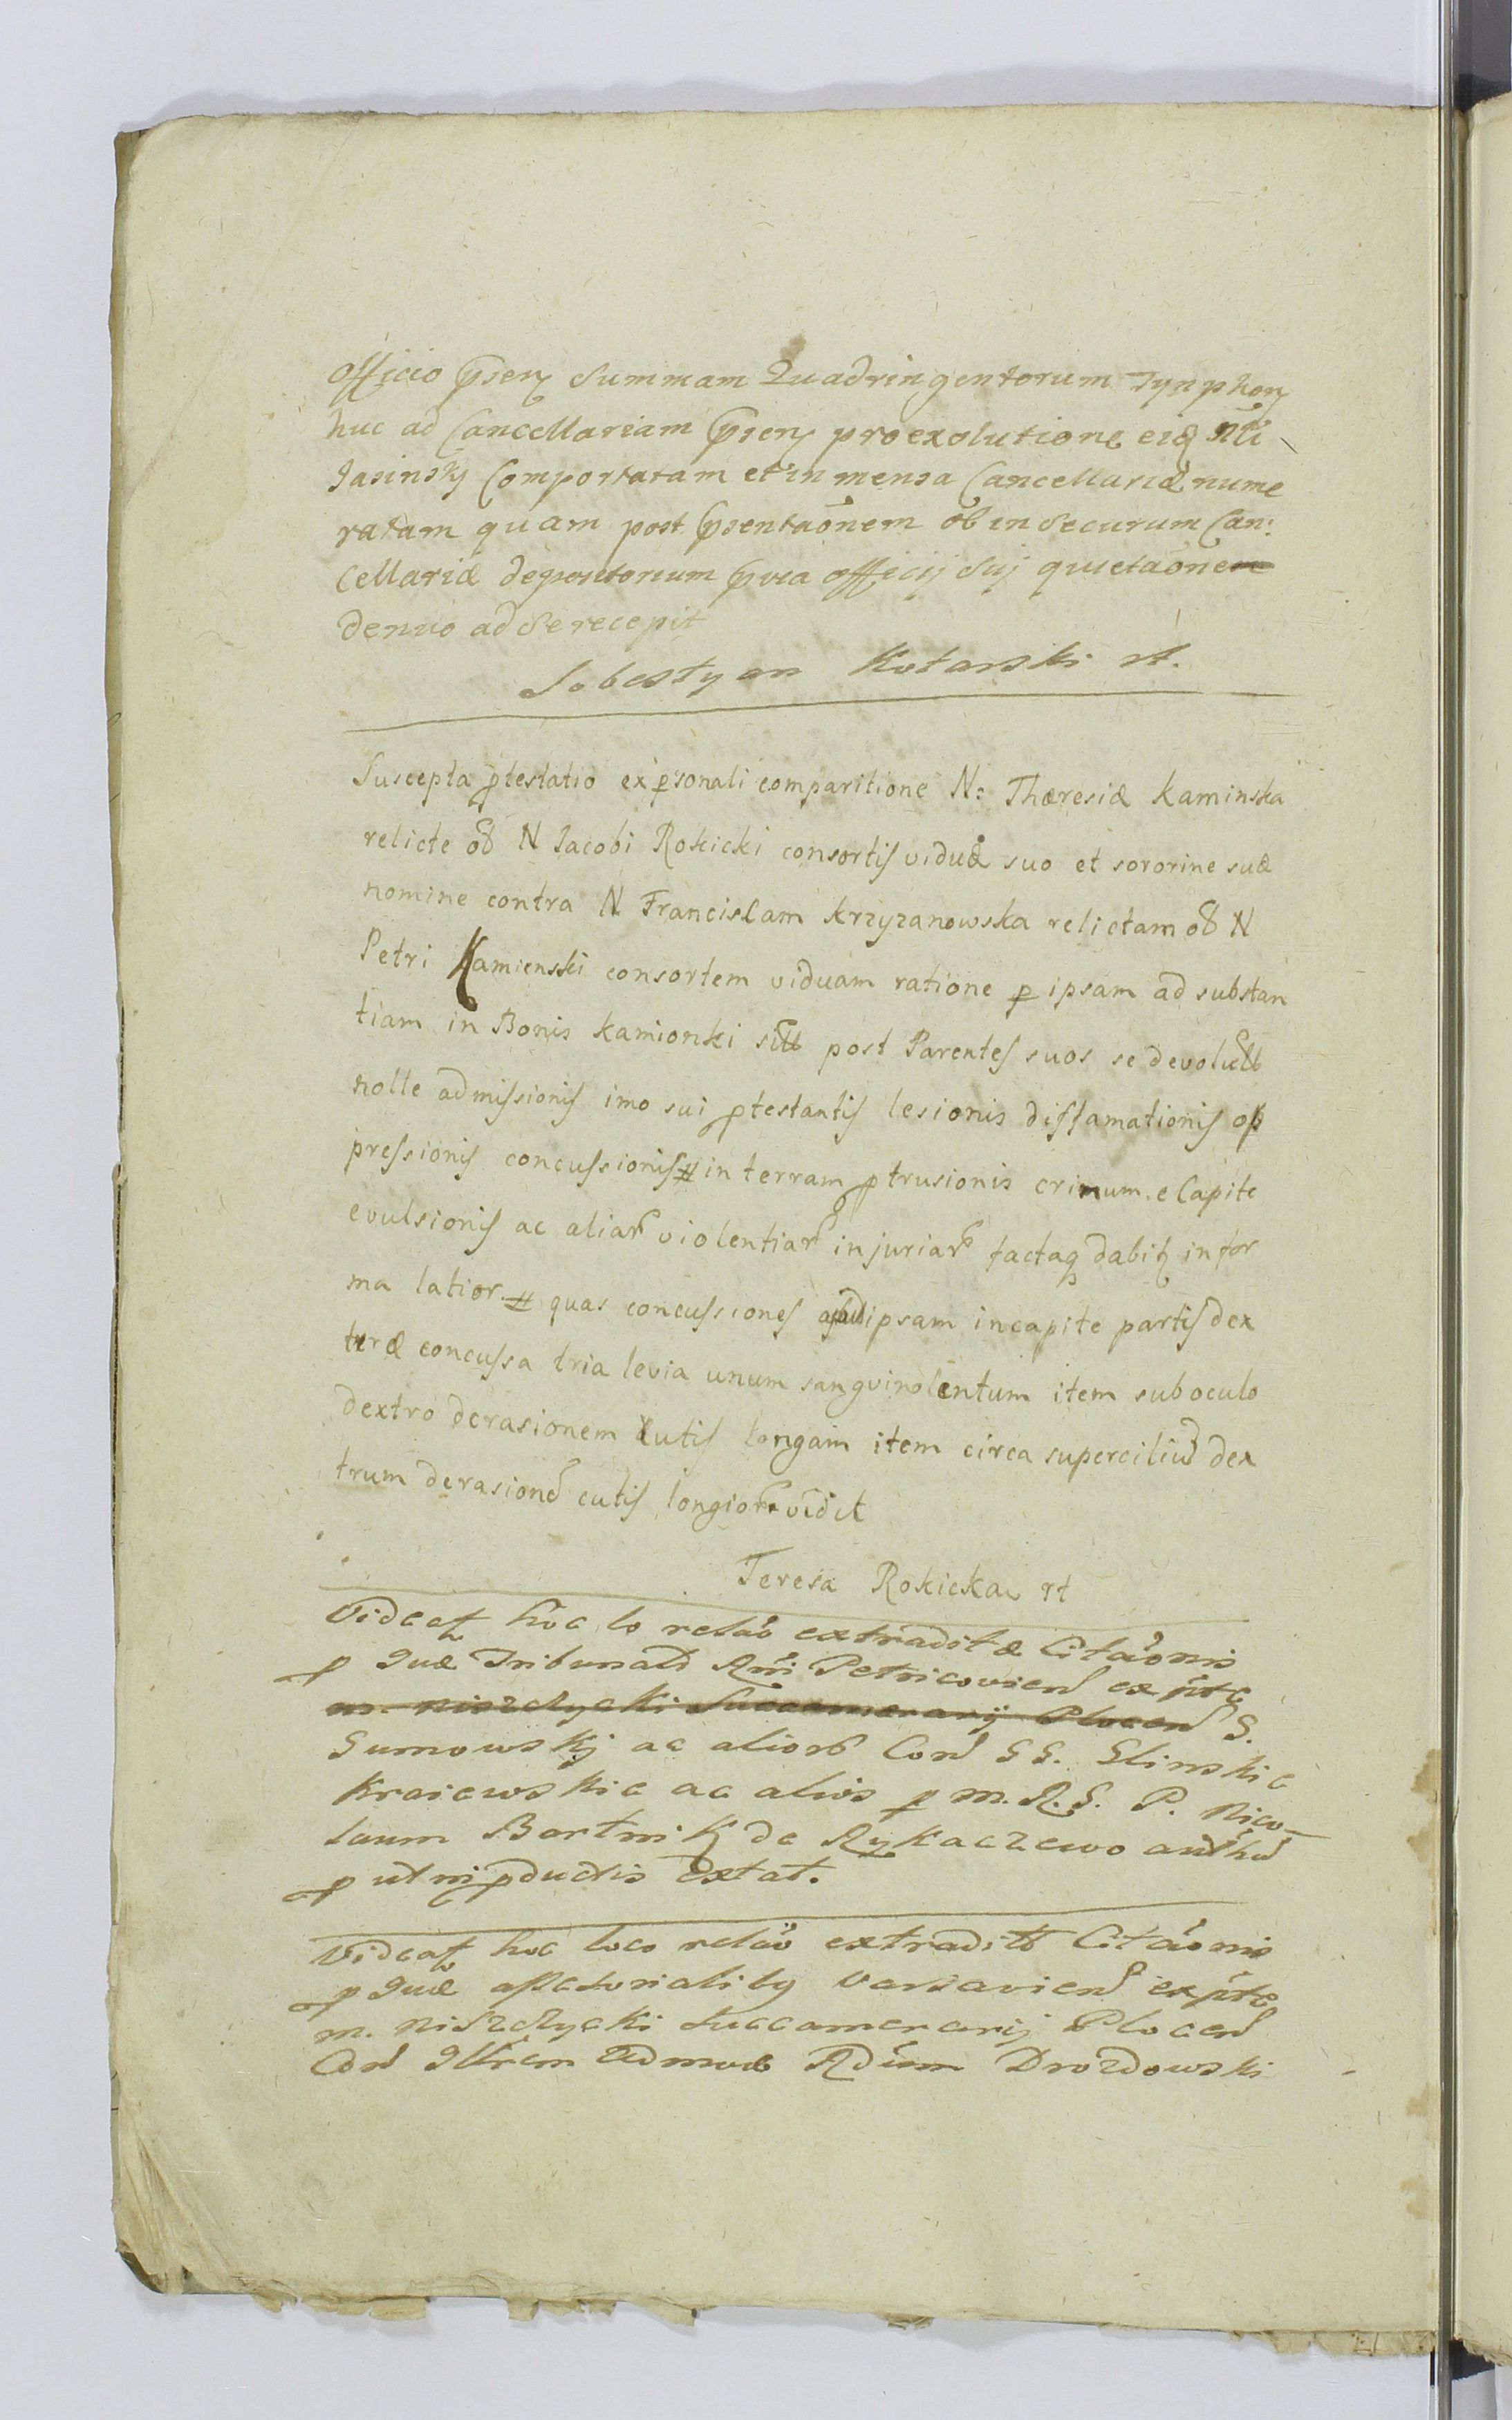 Officio p̃sen̨ Summam Quadringentorum Tynphon̨
huc ad Cancellariam p̃sen̨ pro exolutione eidȝ Nli
Jasinsky Comportatam et in mensa Cancellariæ nume
ratam quam post p̃sentaõnem ob in Securum Can:
cellariæ depositorium p̃via officij Sui quietaõnem
denuo ad Se recepit
Sobestyan Kotarski rt.
Suscepta ptestatio ex psonali comparitione N: Thæresiæ Kaminska
relicte oB N Jacobi Rokicki consortis viduæ suo et sororine suæ
nomine contra N Franciscam Krzyzanowska relictam oB N
Petri Kamienski consortem viduam ratione p ipsam ad substan
tiam in Bonis Kamionki post Parentes suos se
nolle admissionis imo sui ptestantis lesionis diffamationis op
pressionis concussionis # in terram ptrusionis crinum e Capite
evulsionis ac aliar violentiar injuriar factaq dabit in for
ma latior # quas concussiones apud ipsam in capite partis dex
træ concussa tria levia unum sangvinolentum item sub oculo
dextro derasionem cutis longam item circa superciliu dex
trum derasione cutis longior vidit
Teresa Rokicka rt
Videat hoc lo relaõ extraditæ Citaõnis
p Quæ Tribunal Rni Petricovien ex pte
m. Niszczycki Succamerarij Plocen G.
Gumowskj ac alior Con GG. Glinskie
Kraiewskie ac alios p M. R. G. P. Nico-
laum Bartnik de Rykaczewo
put in pductis extat.
Videat hoc loco relaõ extradit Citaõnis
p Quæ assessorialibg Varsavien ex pte
m. Niszczycki Succamerarij Plocen
Con Illrem Admod Rdum Drozdowski